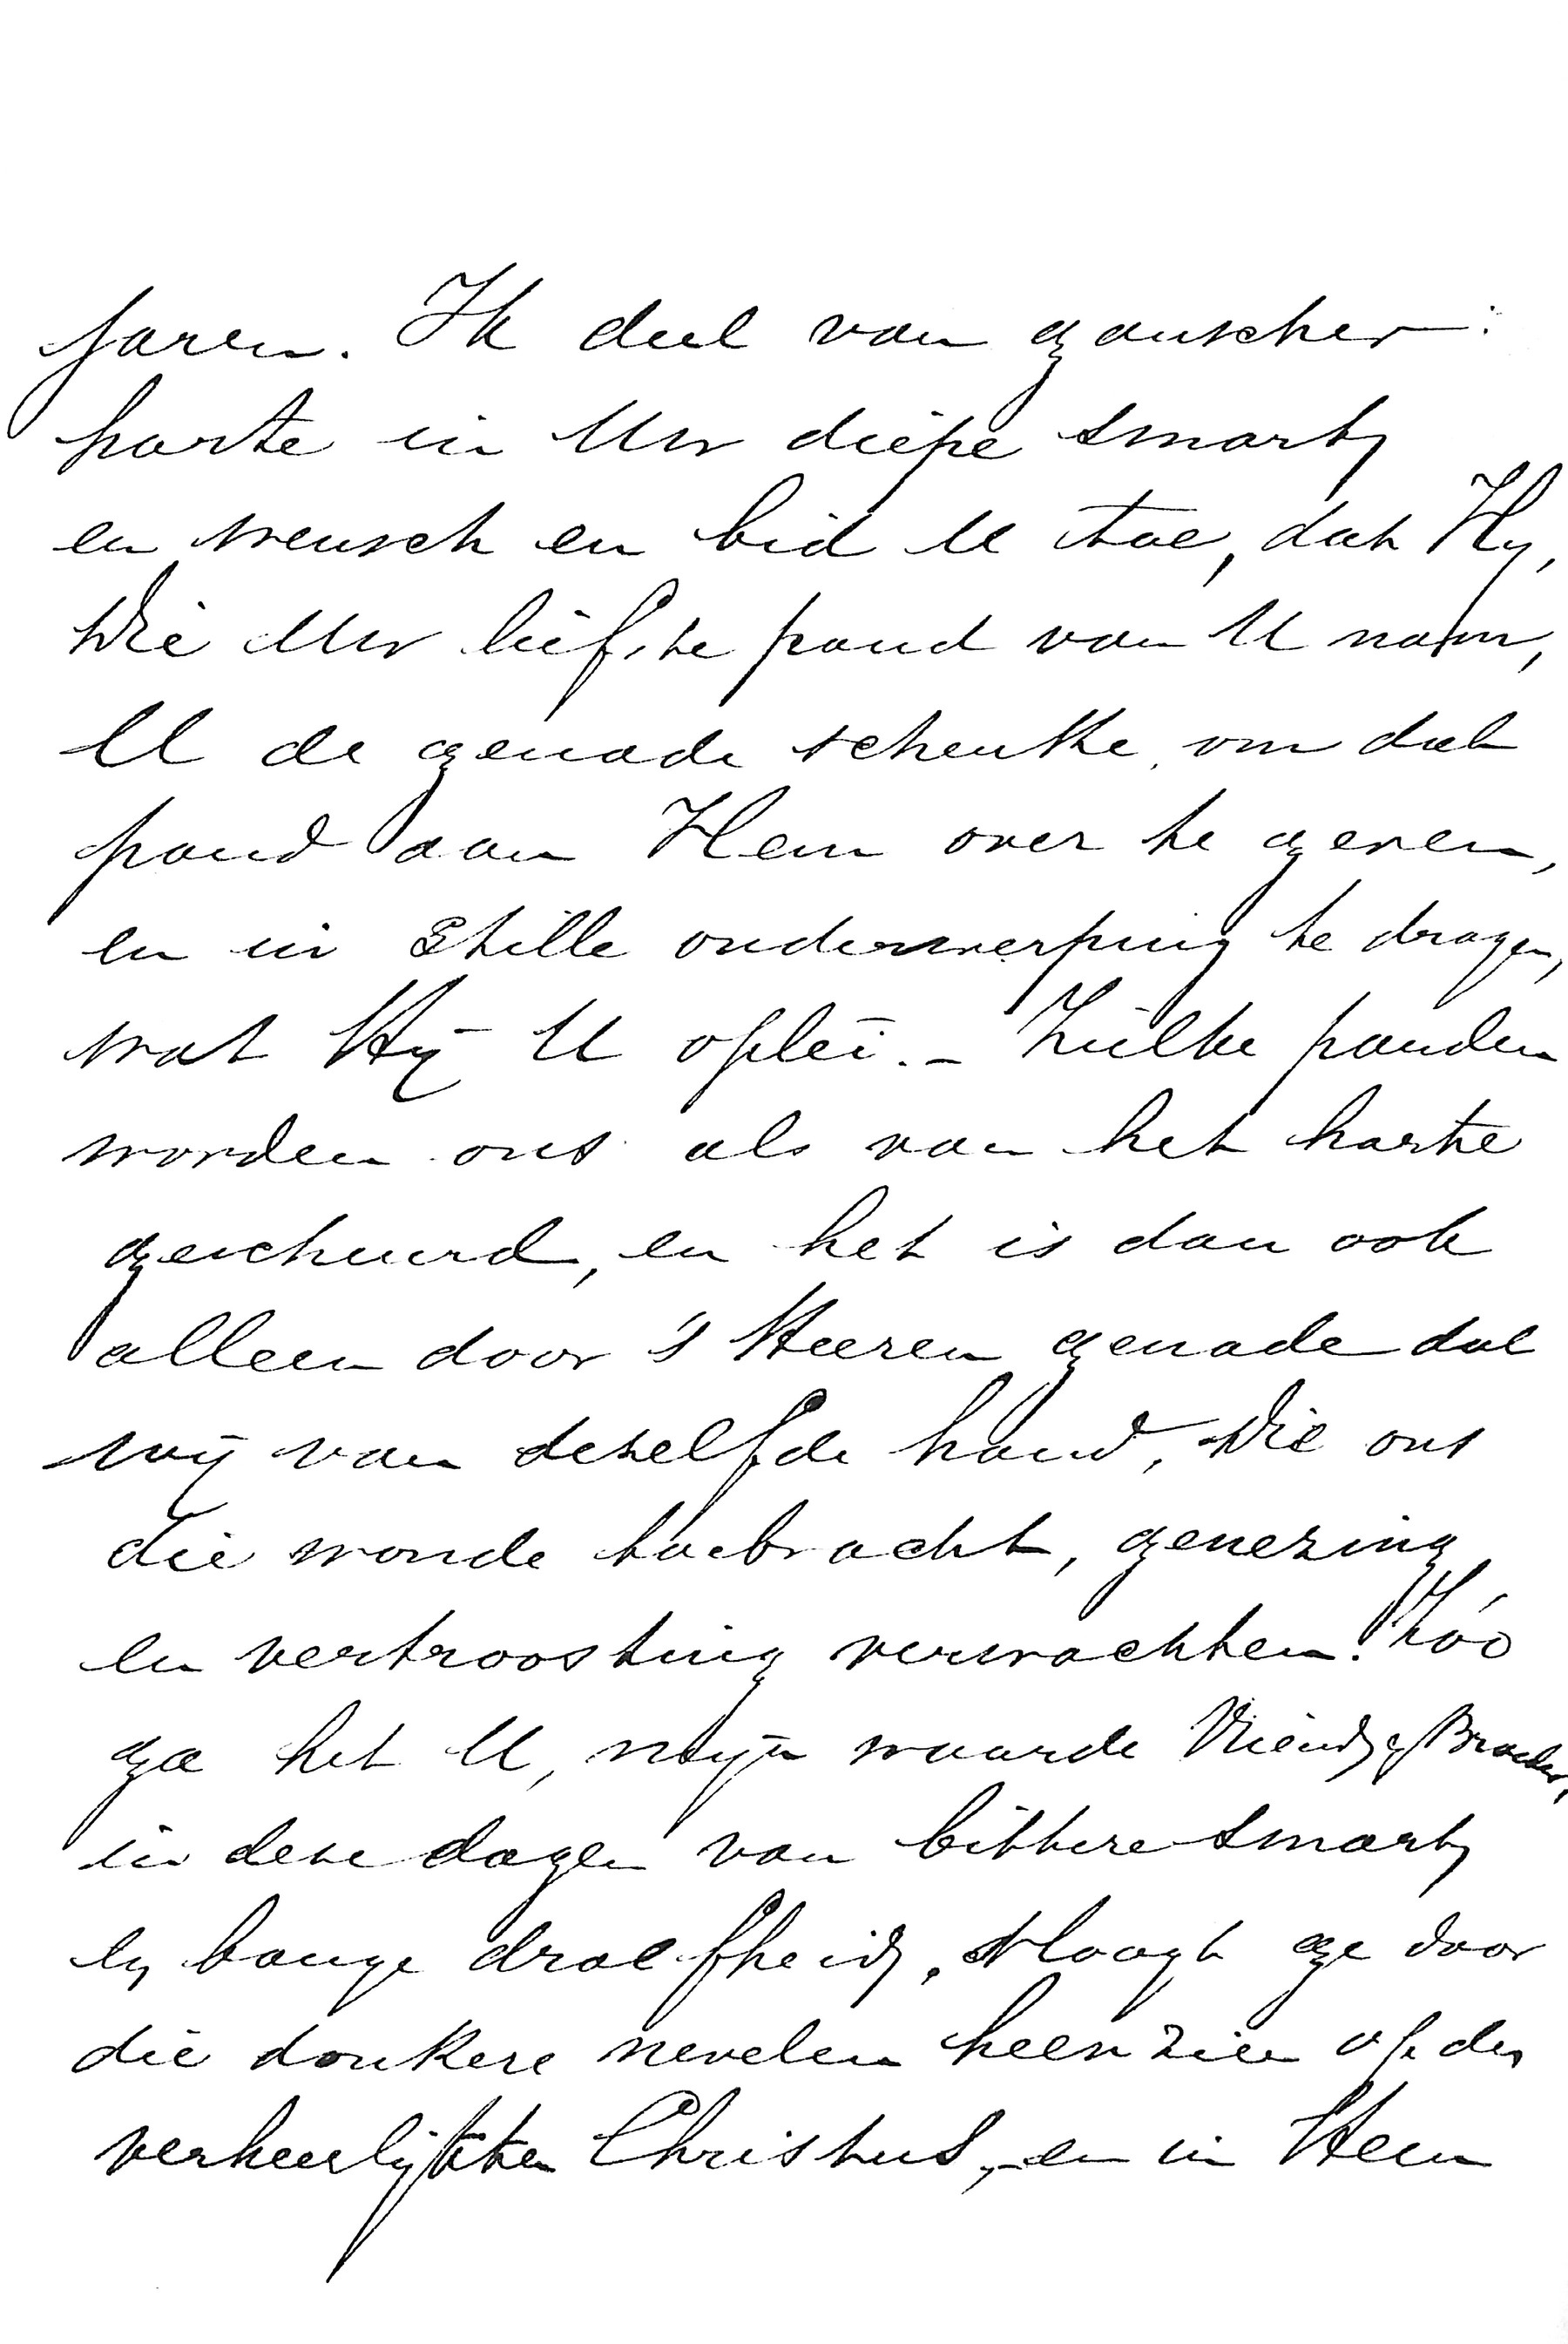 jaren. Ik deel van ganscher
harte in Uw diepe smart,
en wensch en bid U toe, dat Hij,
Die Uw liefste pand van U nam,
U de genade schenke, om dat
pand aan Hem over te geven,
en in stille onderwerping te dragen,
wat Hij U oplei. – Zulke panden
worden ons als van het harte
gescheurd, en het is dan ook
alleen door 's Heeren genade dat
wij van dezelfde hand, Die ons
die wonde toebracht, genezing
en vertroosting verwachten. Zóó
ga het U, mijn waarde Vriend & Broeder,
in deze dagen van bittere smart,
en bange droefheid. Moogt ge door
die donkere nevelen heenzien op den
verheerlijkten Christus, en in Hem